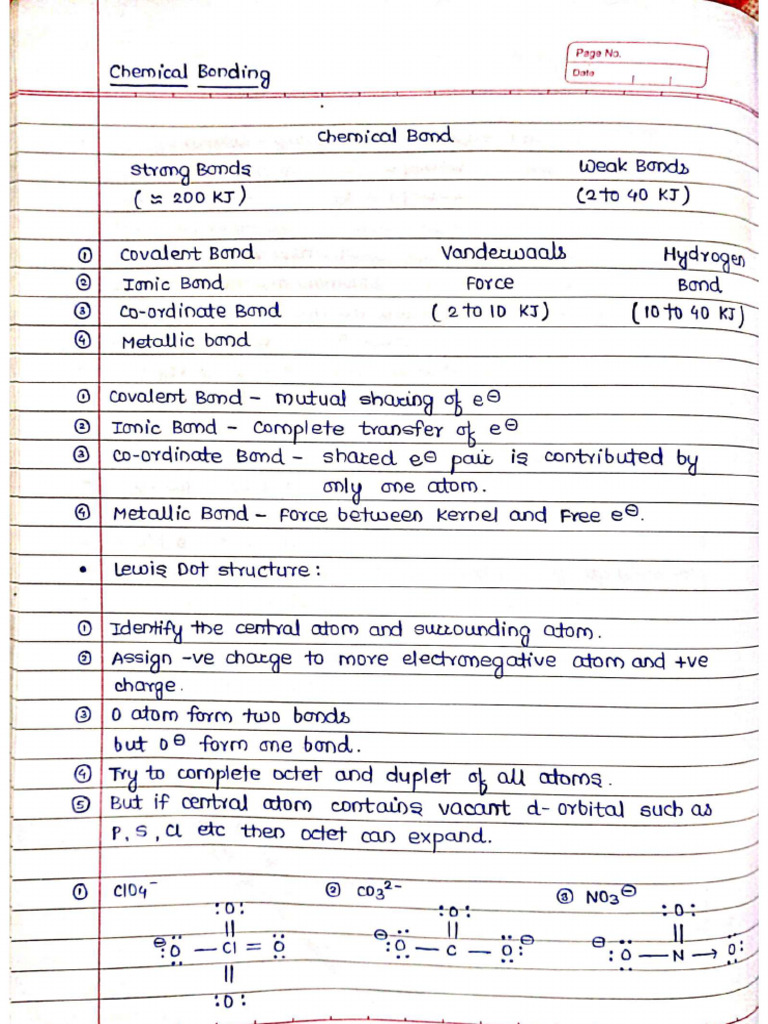 Page No.
Date
Chemical Bonding
Chemical Bond
Strong Bonds Weak Bonds
(≈ 200 KJ) (2 to 40 KJ)
① Covalent Bond Vanderwaals Hydrogen
② Ionic Bond Force Bond
③ Co-ordinate Bond (2 to 10 KJ) (10 to 40 KJ)
④ Metallic bond
① Covalent Bond - mutual sharing of e⊖
② Ionic Bond - Complete transfer of e⊖
③ Co-ordinate Bond - shared e⊖ pair is contributed by
only one atom.
④ Metallic Bond - Force between Kernel and Free e⊖.
• Lewis Dot structure:
① Identify the central atom and surrounding atom.
② Assign -ve charge to more electronegative atom and +ve
charge.
③ O atom form two bonds
but O⊖ form one bond.
④ Try to complete octet and duplet of all atoms.
⑤ But if central atom contains vacant d-orbital such as
P, S, Cl etc then octet can expand.
① ClO4⁻ ② CO3²⁻ ③ NO3⊖
:O: :O: :O:
|| || ||
⊖:Ö — Cl = Ö ⊖:Ö — C — Ö:⊖ ⊖:Ö — N → Ö:
||
:O: